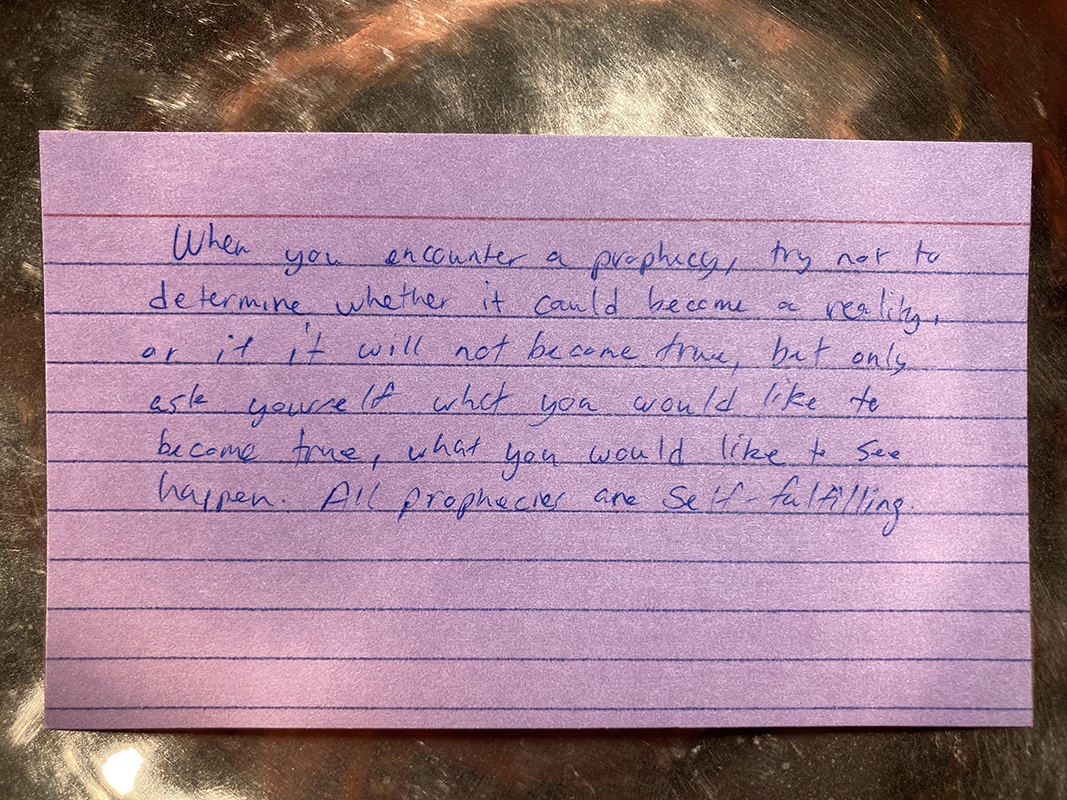 When you encounter a prophecy, try not to
determine whether it could become a reality,
or if it will not become true, but only
ask yourself what you would like to
become true, what you would like to see
happen. All prophecies are self-fulfilling.